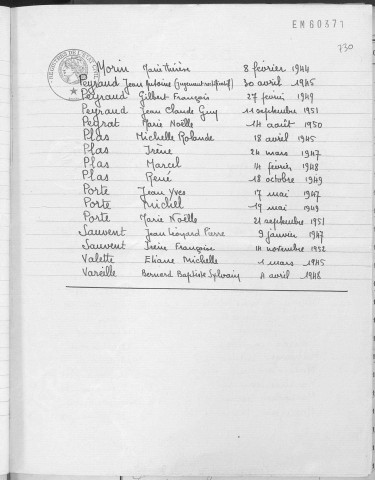 EM60371
730
Morin Marie Thérèse 8 février 1944
Peyraud Jean Antoine (jugement rectificatif) 30 avril 1945
Peyraud Gilbert François 27 février 1949
Peyraud Jean Claude Guy 11 septembre 1951
Peyrat Marie Noëlle 14 août 1950
Plas Michelle Rolande 18 avril 1945
Plas Irène 24 mars 1947
Plas Marcel 14 février 1948
Plas René 18 octobre 1949
Porte Jean Yves 17 mai 1947
Porte Michel 19 mai 1949
Porte Marie Noëlle 21 septembre 1951
Sauvent Jean Léonard Pierre 9 janvier 1947
Sauvent Irène Françoise 14 novembre 1952
Valette Eliane Michelle 1 mars 1945
Vareille Bernard Baptiste Sylvain 4 avril 1948